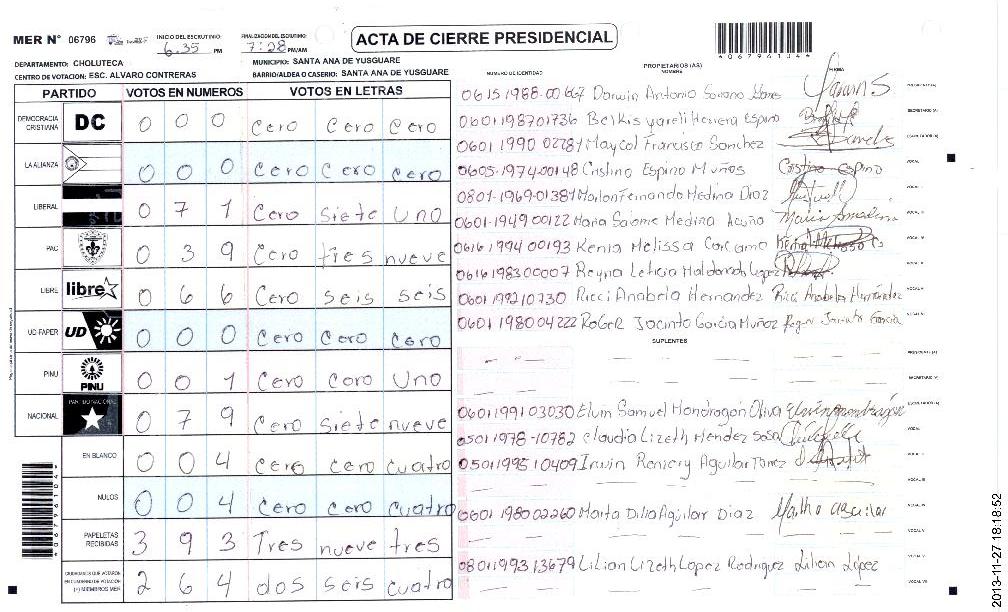 MER Nº 06796 INICIO DEL ESCRUTINIO: 6:35 PM FINALIZACION DEL ESCRUTINIO: 7:28 PM/AM
ACTA DE CIERRE PRESIDENCIAL
*067961044*
DEPARTAMENTO: CHOLUTECA MUNICIPIO: SANTA ANA DE YUSGUARE
CENTRO DE VOTACION: ESC. ALVARO CONTRERAS BARRIO/ALDEA O CASERIO: SANTA ANA DE YUSGUARE
PARTIDO VOTOS EN NUMEROS VOTOS EN LETRAS
DEMOCRACIA CRISTIANA DC 0 0 0 Cero Cero Cero
LA ALIANZA 0 0 0 Cero Cero Cero
LIBERAL 0 7 1 Cero Siete Uno
PAC 0 3 9 Cero tres nueve
LIBRE libre 0 6 6 Cero seis seis
UD-FAPER UD 0 0 0 Cero Cero Cero
PINU PINU 0 0 1 Cero Cero Uno
NACIONAL PARTIDO NACIONAL 0 7 9 Cero Siete nueve
EN BLANCO 0 0 4 Cero cero cuatro
NULOS 0 0 4 Cero Cero Cuatro
PAPELETAS RECIBIDAS 3 9 3 Tres nueve tres
CIUDADANOS QUE VOTARON EN CUADERNO DE VOTACION (+) MIEMBROS MER 2 6 4 dos seis cuatro
NUMERO DE IDENTIDAD PROPIETARIOS (AS) NOMBRE FIRMA
Darwin Antonio Soriano
0601198701736 Belkis yareli Herrera Espino
0601 1990 Maycol Francisco Sanchez
0605-1974-00148 Cristino Espino Muños Cristino espino
0801-1969-01381 Marlon Fernando Medina Diaz
0601-1949-00122 Maria Salome Medina Acuña Maria
0616 1994 00193 Kenia Melissa Carcamo
0616 1983 00007 Reyna Leticia Maldonado Lopez
0601 199210730 Ricci Anabela Hernandez Ricci Anabela Hernández
0601 1980 04222 RoGer Jacinto Garcia Muñoz Roger Jacinto Garcia
SUPLENTES
0601 1991 03030 Elvin Samuel Mondragon Oliva
0501 1978-10782 Claudia Lizeth Mendez Sosa
0501 1995 10409 Irwin Aguilar
0601 1980 02260 Marta Dilia Aguilar Diaz Martha aguilar
0801 1993 13679 Lilian Lizeth Lopez Rodriguez Lilian López
2013-11-27 18:18:52